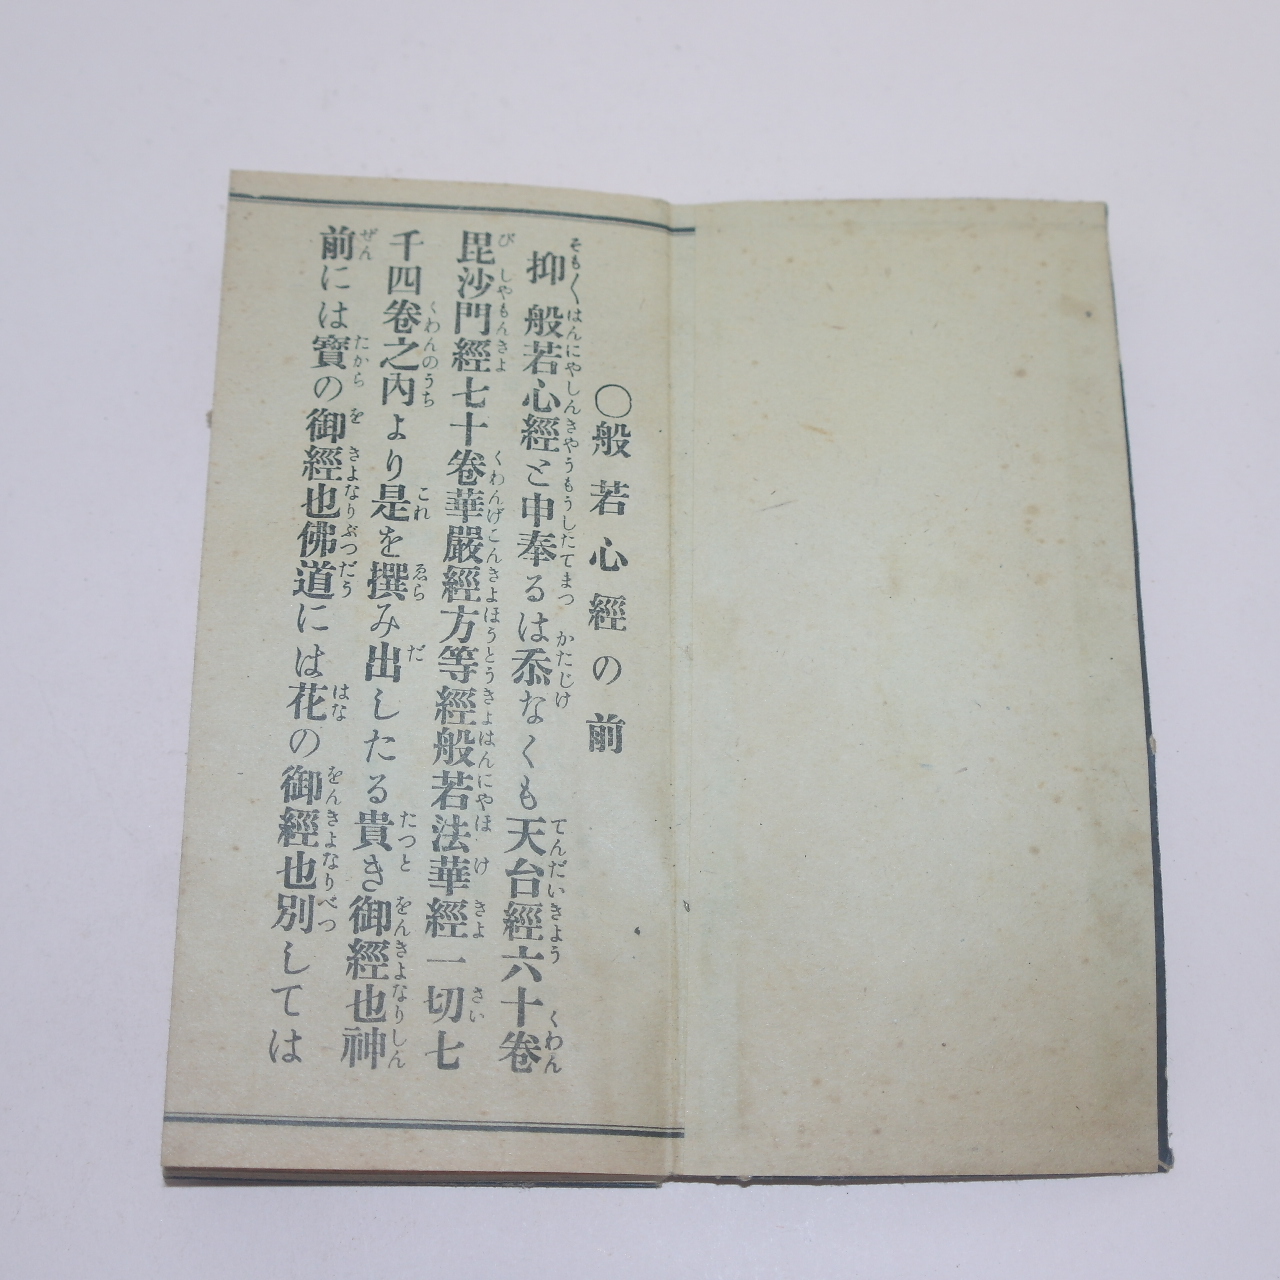 ○般若心經の前
抑般若心經と申奉るは忝なくも天台經六十卷
毘沙門經七十卷華嚴經方等經般若法華經一切七
千四卷之內より是を撰み出したる貴き御經也神
前には寶の御經也佛道には花の御經也別しては